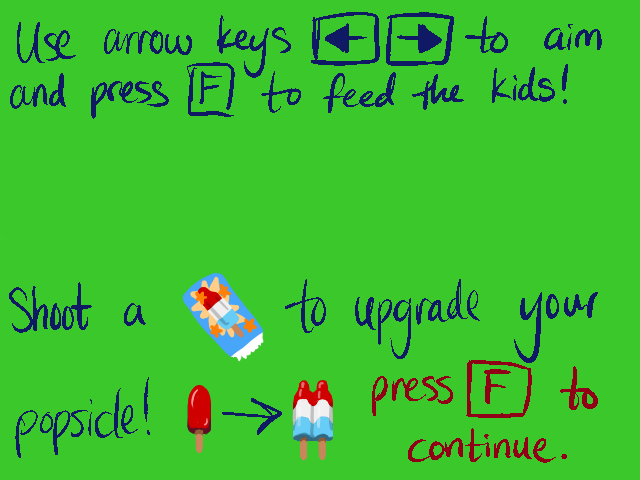 Use arrow keys ← → to aim
and press F to feed the kids!
Shoot a to upgrade your
popsicle! → press F to
continue.